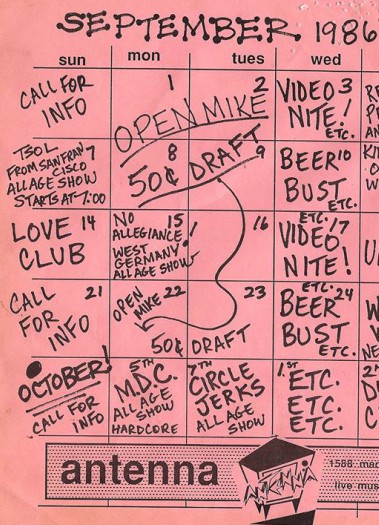 SEPTEMBER 1986
sun mon tues wed
CALL FOR
INFO
1
2
OPEN MIKE
VIDEO 3
NITE!
ETC.
TSOL 7
FROM SAN FRAN
CISCO
ALL AGE SHOW
STARTS AT 7:00
8
50¢ DRAFT
9
BEER 10
BUST
ETC.
LOVE 14
CLUB
NO 15
ALLEGIANCE!
WEST
GERMANY!
ALL AGE SHOW
16
ETC.
VIDEO 17
NITE!
CALL 21
FOR
INFO
OPEN
MIKE 22
23
50¢ DRAFT
ETC.
BEER 24
BUST
ETC.
OCTOBER!
CALL FOR
INFO
5TH
M.D.C.
ALL AGE
SHOW
HARDCORE
7TH
CIRCLE
JERKS
ALL AGE
SHOW
1.ST
ETC.
ETC.
ETC.
antenna
ANTENNA
1588 mad
live mus